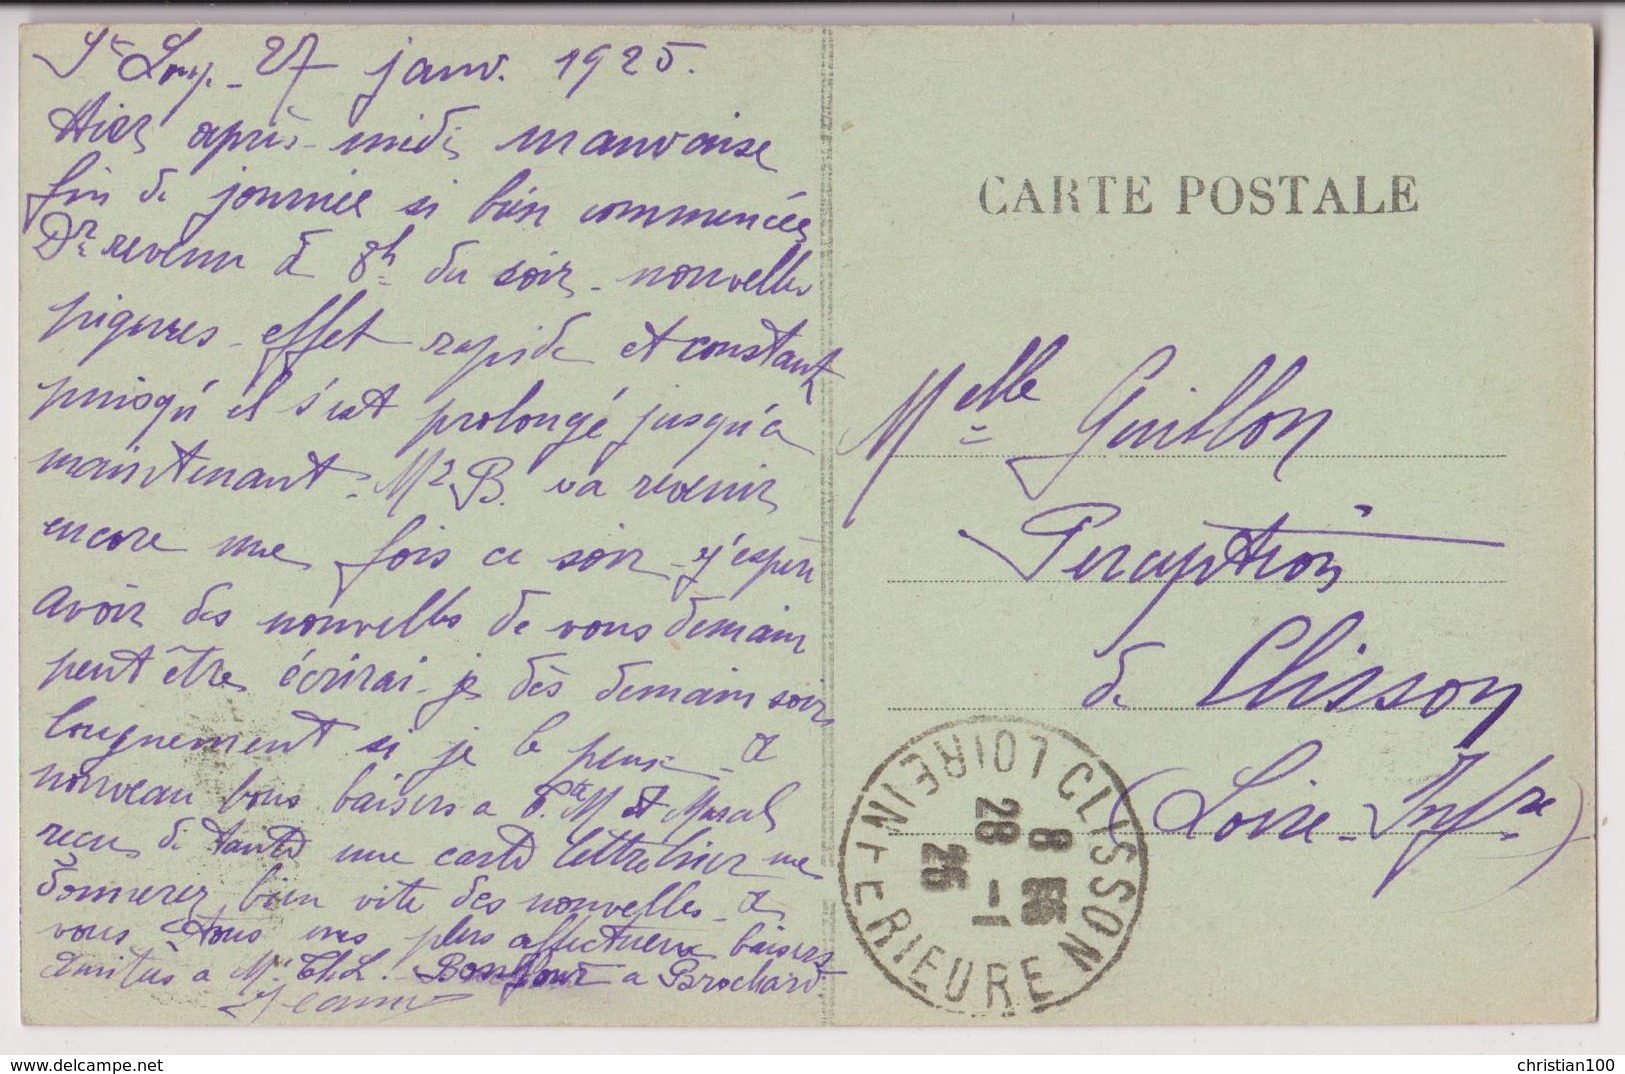 St Loup - 27 janv. 1925.
Hier après-midi mauvaise
fin de journée si bien commencée
Dr revenu à 8h du soir - nouvelles
piqures - effet rapide et constant
puisqu'il s'est prolongé jusqu'à
maintenant - Mr B. va revenir
encore une fois ce soir - j'espère
avoir des nouvelles de vous demain
peut être écrirai-je dès demain soir
longuement si je le peux - à
nouveau bons baisers à P.te M et
reçu de tante une carte lettre
donnerez bien vite des nouvelles - à
vous tous mes plus affectueux baisers
Amitiés à Bonjour à Brochard
Jeanne
CARTE POSTALE
Melle Guillon
Perception
de Clisson
(Loire-Infre)
CLISSON
LOIRE INFÉRIEURE
8 E
28 -1
25
delcampe.net
christian100